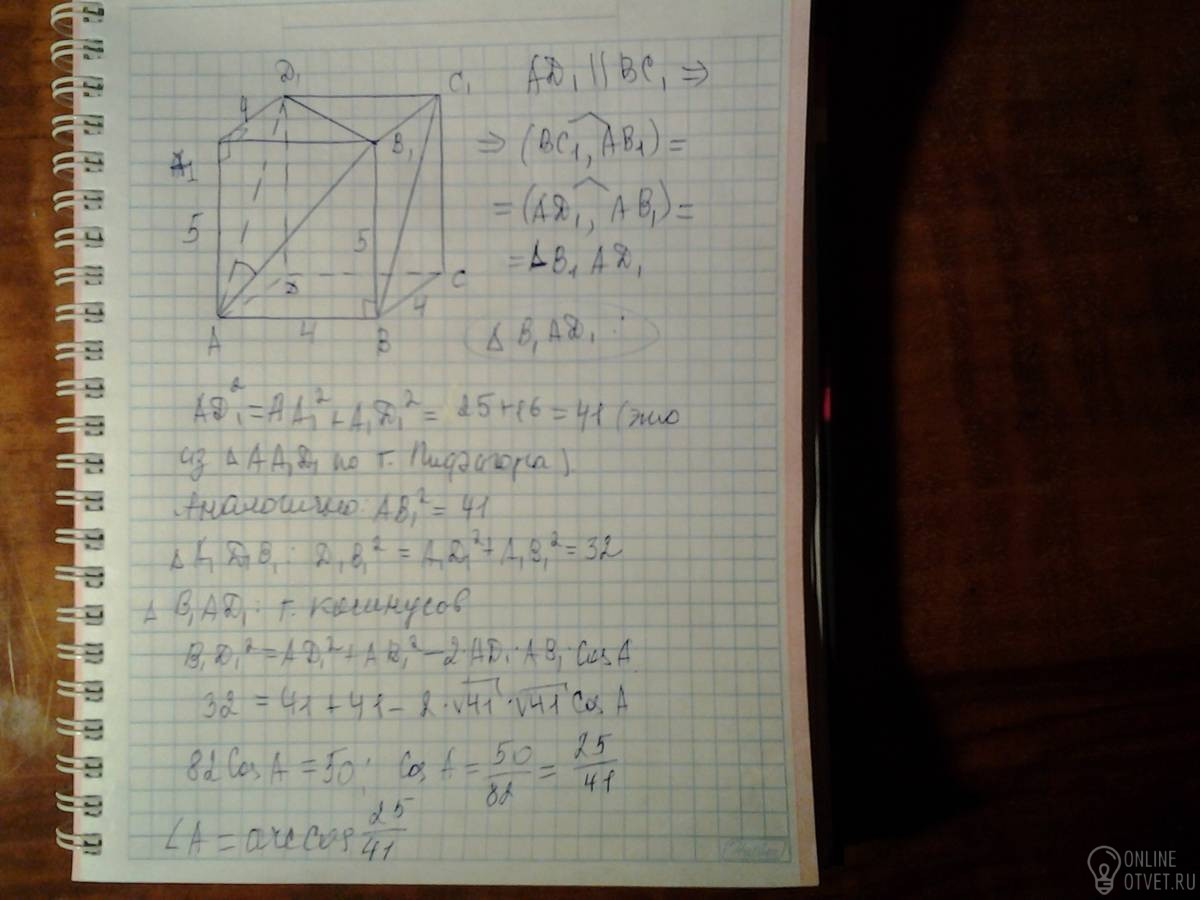 D₁
C₁
4
A₁
B₁
5
5
D
C
4
A
4
B
AD₁ || BC₁ ⇒
⇒ (BC₁, AB₁) =
= (AD₁, AB₁) =
= ∆B₁AD₁
∆ B₁AD₁ :
AD₁² = AA₁² + A₁D₁² = 25+16 = 41 (это
из ∆ AA₁D₁ по т. Пифагора).
Аналогично: AB₁² = 41
∆ A₁D₁B₁: D₁B₁² = A₁D₁² + A₁B₁² = 32
∆ B₁AD₁: т. косинусов
B₁D₁² = AD₁² + AB₁² − 2·AD₁·AB₁·cos A
32 = 41 + 41 − 2·√41·√41 cos A
82 cos A = 50; cos A = 50/82 = 25/41
∠A = arccos 25/41
ONLINE
OTVET.RU